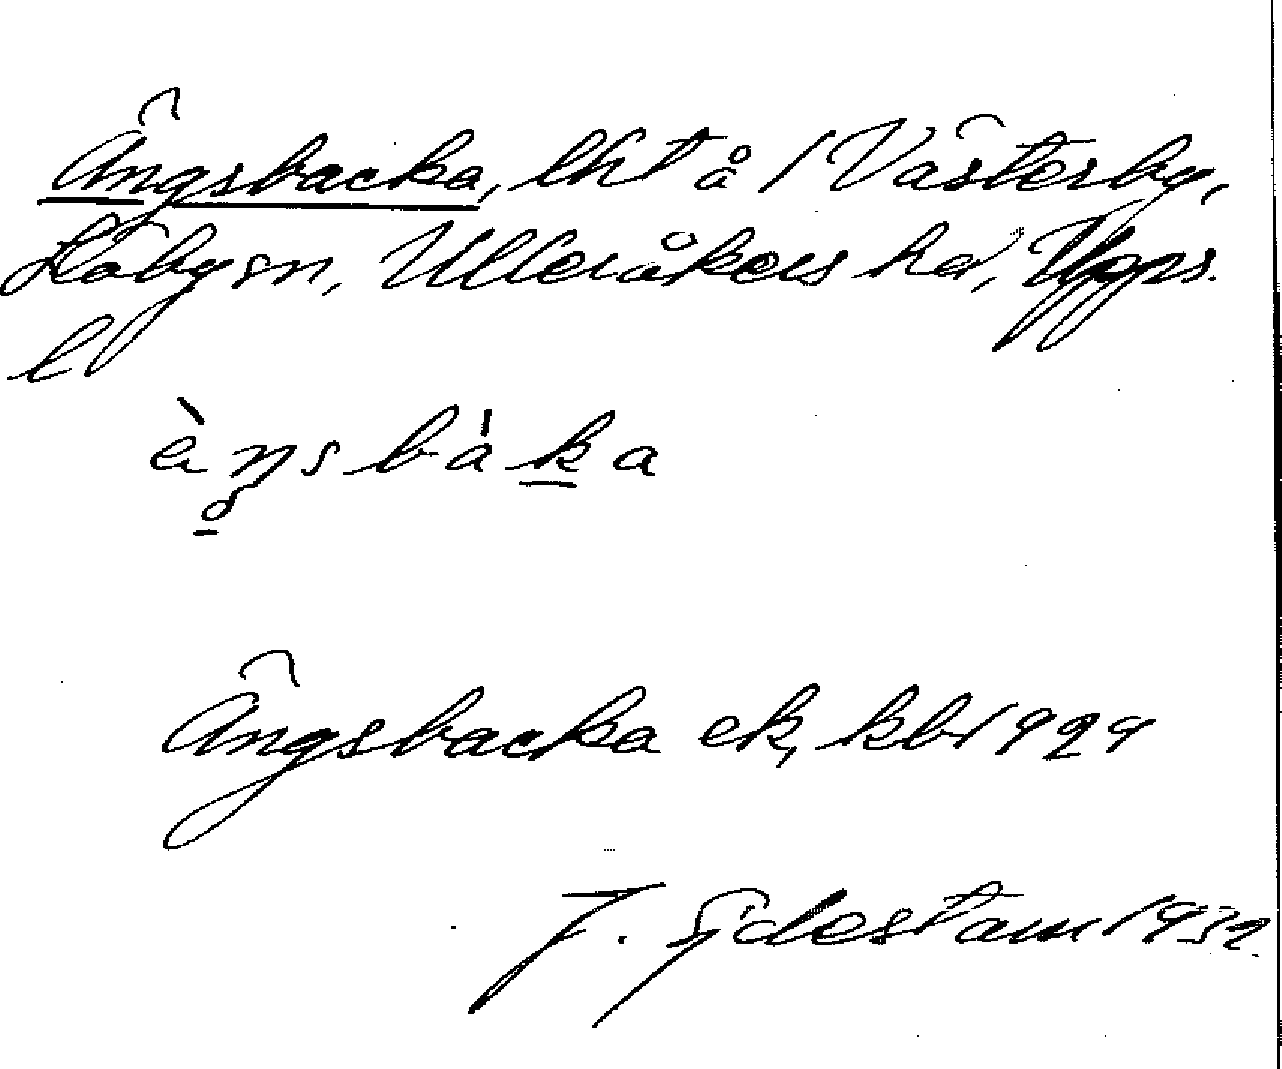 Ängsbacka, lht å 1 Västerby,
Läby sn, Ulleråkers hd, Upps.
l
Ängsbacka ek, kb 1929
J. Sjdestam 1932